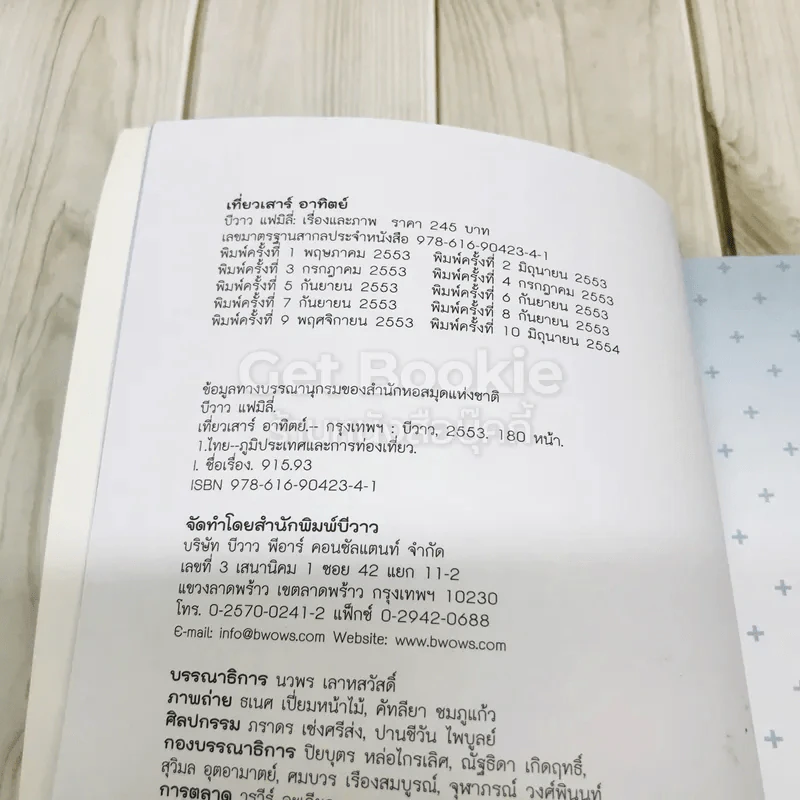 เที่ยวเสาร์ อาทิตย์
บีวาว แฟมิลี่: เรื่องและภาพ ราคา 245 บาท
เลขมาตรฐานสากลประจำหนังสือ 978-616-90423-4-1
พิมพ์ครั้งที่ 1 พฤษภาคม 2553 พิมพ์ครั้งที่ 2 มิถุนายน 2553
พิมพ์ครั้งที่ 3 กรกฎาคม 2553 พิมพ์ครั้งที่ 4 กรกฎาคม 2553
พิมพ์ครั้งที่ 5 กันยายน 2553 พิมพ์ครั้งที่ 6 กันยายน 2553
พิมพ์ครั้งที่ 7 กันยายน 2553 พิมพ์ครั้งที่ 8 กันยายน 2553
พิมพ์ครั้งที่ 9 พฤศจิกายน 2553 พิมพ์ครั้งที่ 10 มิถุนายน 2554
Get Bookie
ร้านหนังสือจุ๊กจิ๊
ข้อมูลทางบรรณานุกรมของสำนักหอสมุดแห่งชาติ
บีวาว แฟมิลี่.
เที่ยวเสาร์ อาทิตย์.-- กรุงเทพฯ : บีวาว, 2553. 180 หน้า.
1.ไทย--ภูมิประเทศและการท่องเที่ยว.
I. ชื่อเรื่อง. 915.93
ISBN 978-616-90423-4-1
จัดทำโดยสำนักพิมพ์บีวาว
บริษัท บีวาว พีอาร์ คอนซัลแตนท์ จำกัด
เลขที่ 3 เสนานิคม 1 ซอย 42 แยก 11-2
แขวงลาดพร้าว เขตลาดพร้าว กรุงเทพฯ 10230
โทร. 0-2570-0241-2 แฟ็กซ์ 0-2942-0688
E-mail: info@bwows.com Website: www.bwows.com
บรรณาธิการ นวพร เลาหสวัสดิ์
ภาพถ่าย ธเนศ เปี่ยมหน้าไม้, คัทลียา ชมภูแก้ว
ศิลปกรรม ภราดร เซ่งศรีส่ง, ปานชีวัน ไพบูลย์
กองบรรณาธิการ ปิยบุตร หล่อไกรเลิศ, ณัฐธิดา เกิดฤทธิ์,
สุวิมล อุตอามาตย์, ศมบวร เรืองสมบูรณ์, จุฬาภรณ์ วงศ์พินนท์
การตลาด